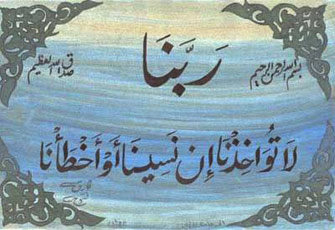 بسم الله الرحمن الرحيم
رَبَّنَا
صدق الله العظيم
لَا تُؤَاخِذْنَا إِن نَسِينَا أَوْ أَخْطَأْنَا